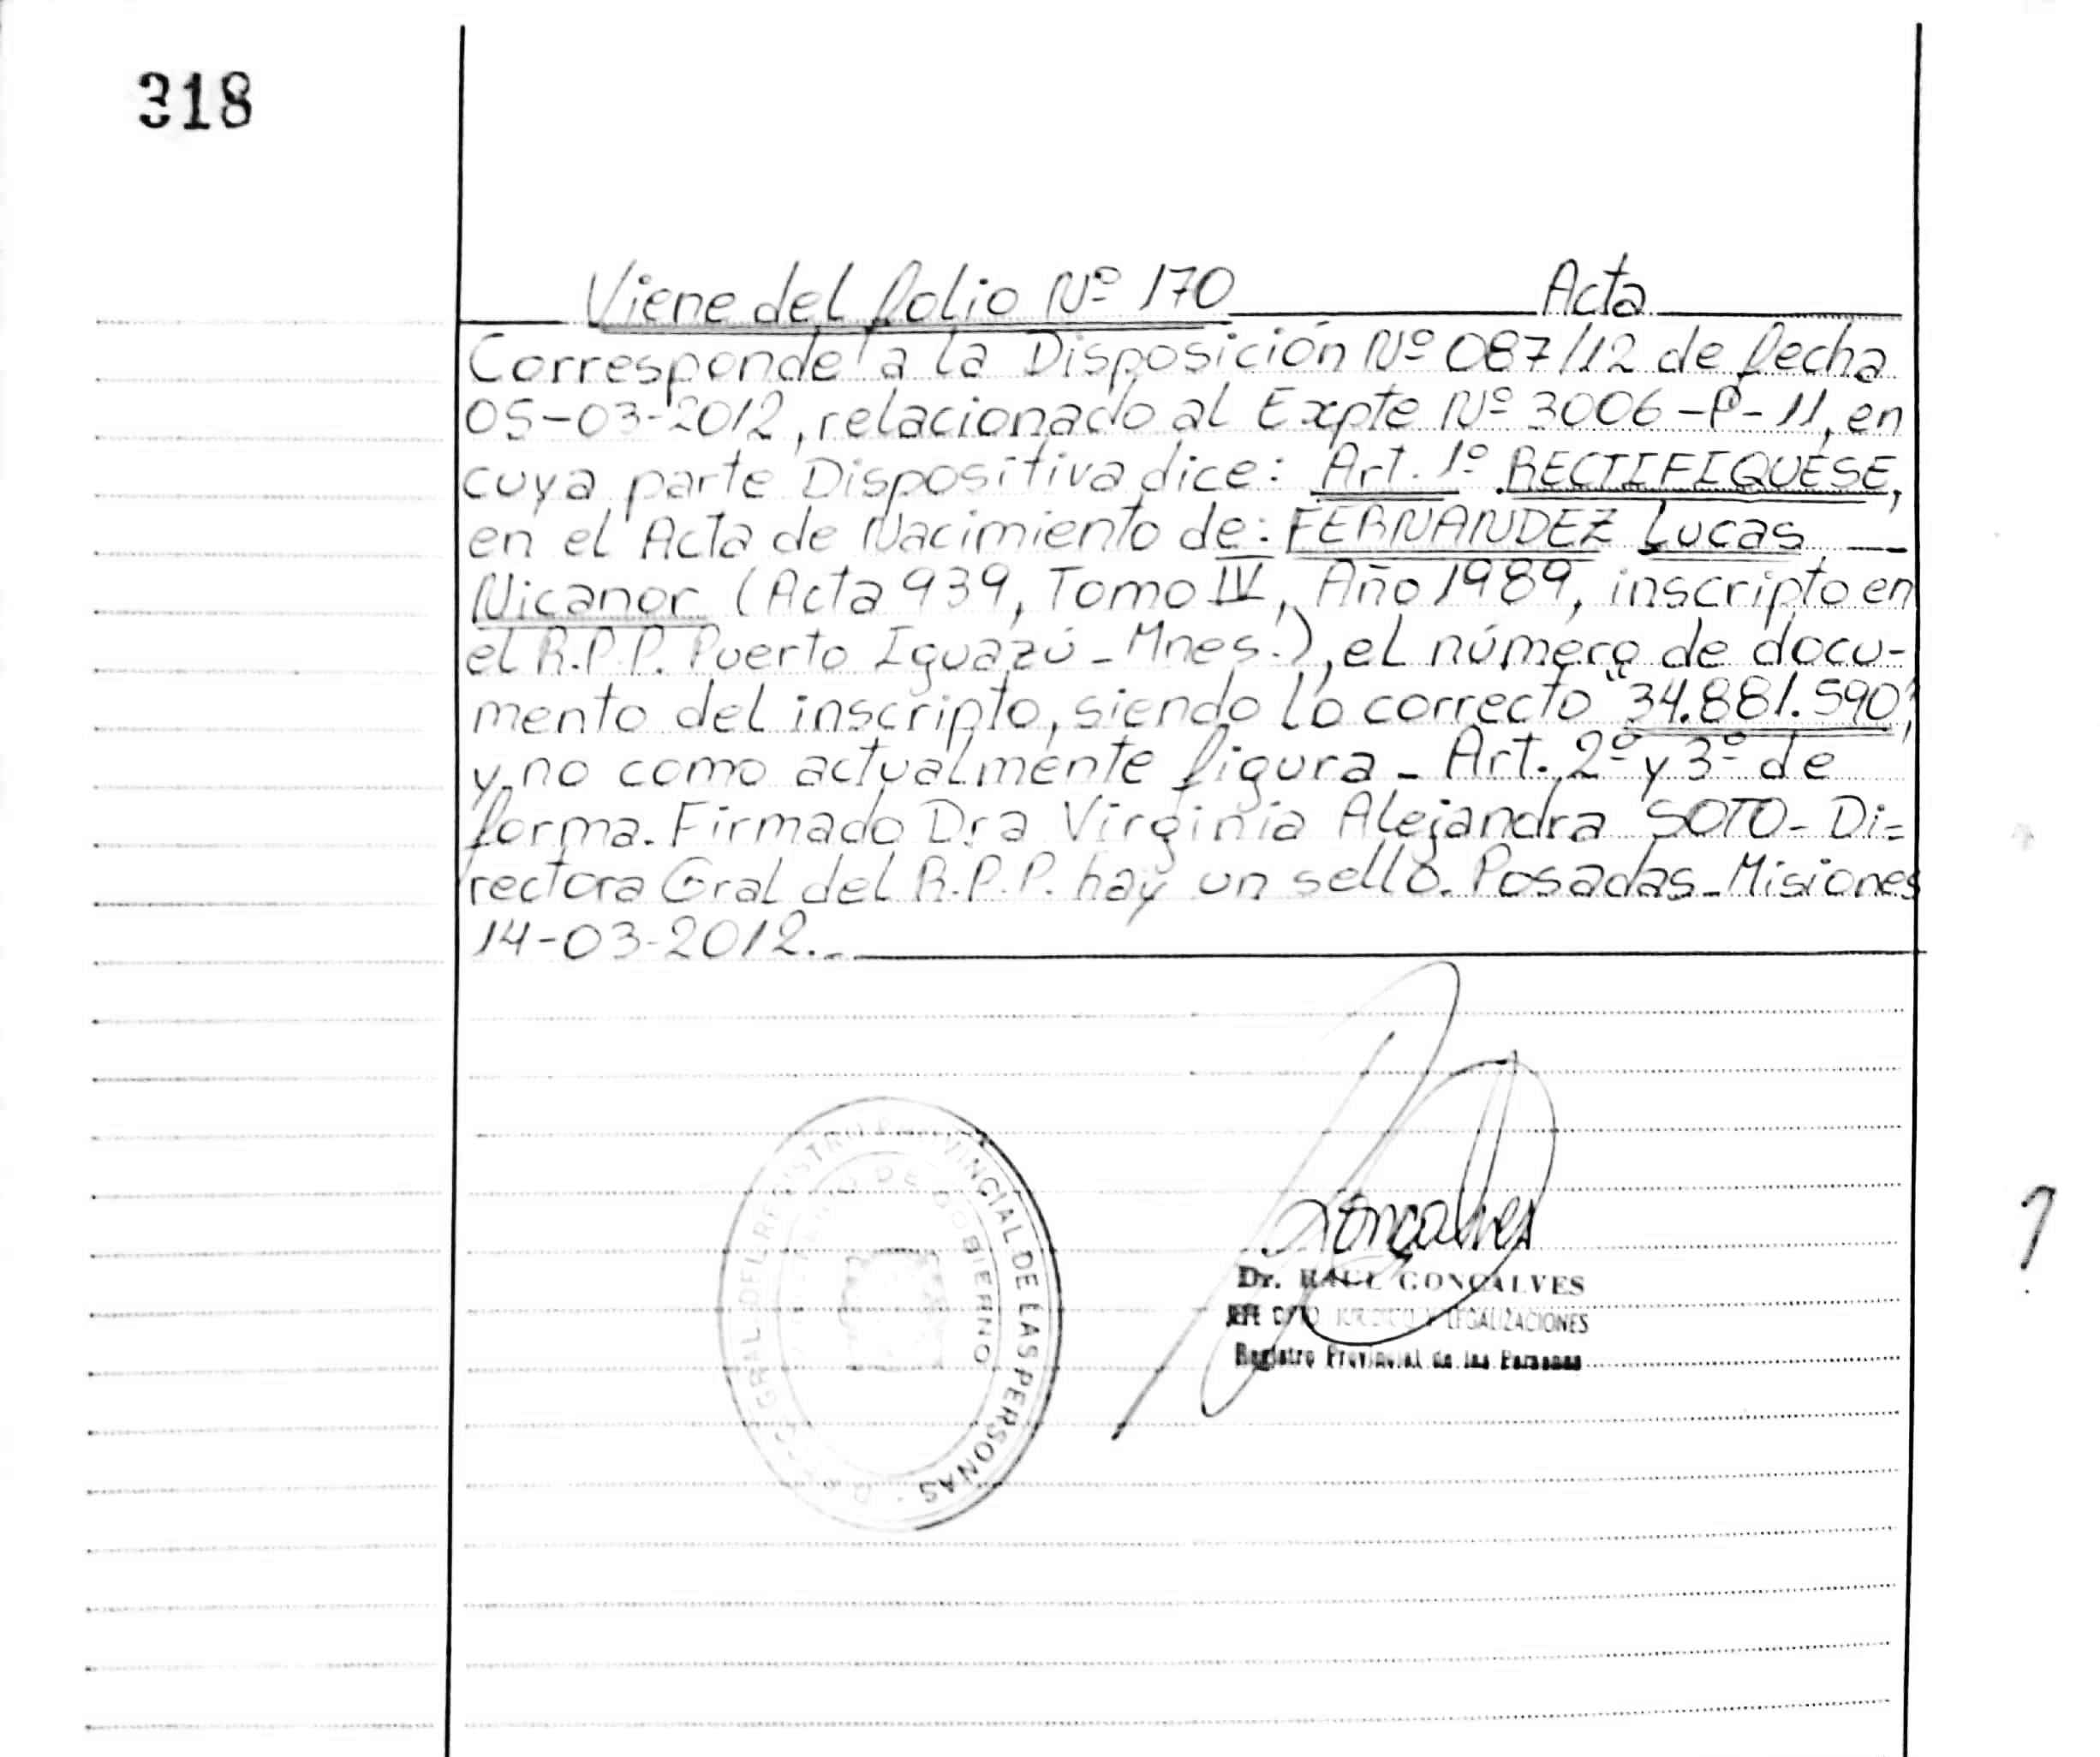 318
Viene del folio Nº 170 Acta
Corresponde a la Disposición Nº 087/12 de fecha
05-03-2012, relacionado al Expte Nº 3006-P-11, en
cuya parte Dispositiva dice: Art. 1º RECTIFIQUESE,
en el Acta de Nacimiento de: FERNANDEZ Lucas —
Nicanor (Acta 939, Tomo IV, Año 1989, inscripto en
el R.P.P. Puerto Iguazú - Mnes.), el número de docu-
mento del inscripto, siendo lo correcto "34.881.590",
y no como actualmente figura - Art. 2º y 3º de
forma. Firmado Dra Virginia Alejandra SOTO - Di=
rectora Gral del R.P.P. hay un sello. Posadas - Misiones
14-03-2012.-
GRAL. DEL REGISTRO PROVINCIAL DE LAS PERSONAS
DE GOBIERNO
Goncalves
Dr. RAUL GONCALVES
JEFE DPTO JURIDICO Y LEGALIZACIONES
Registro Provincial de las Personas